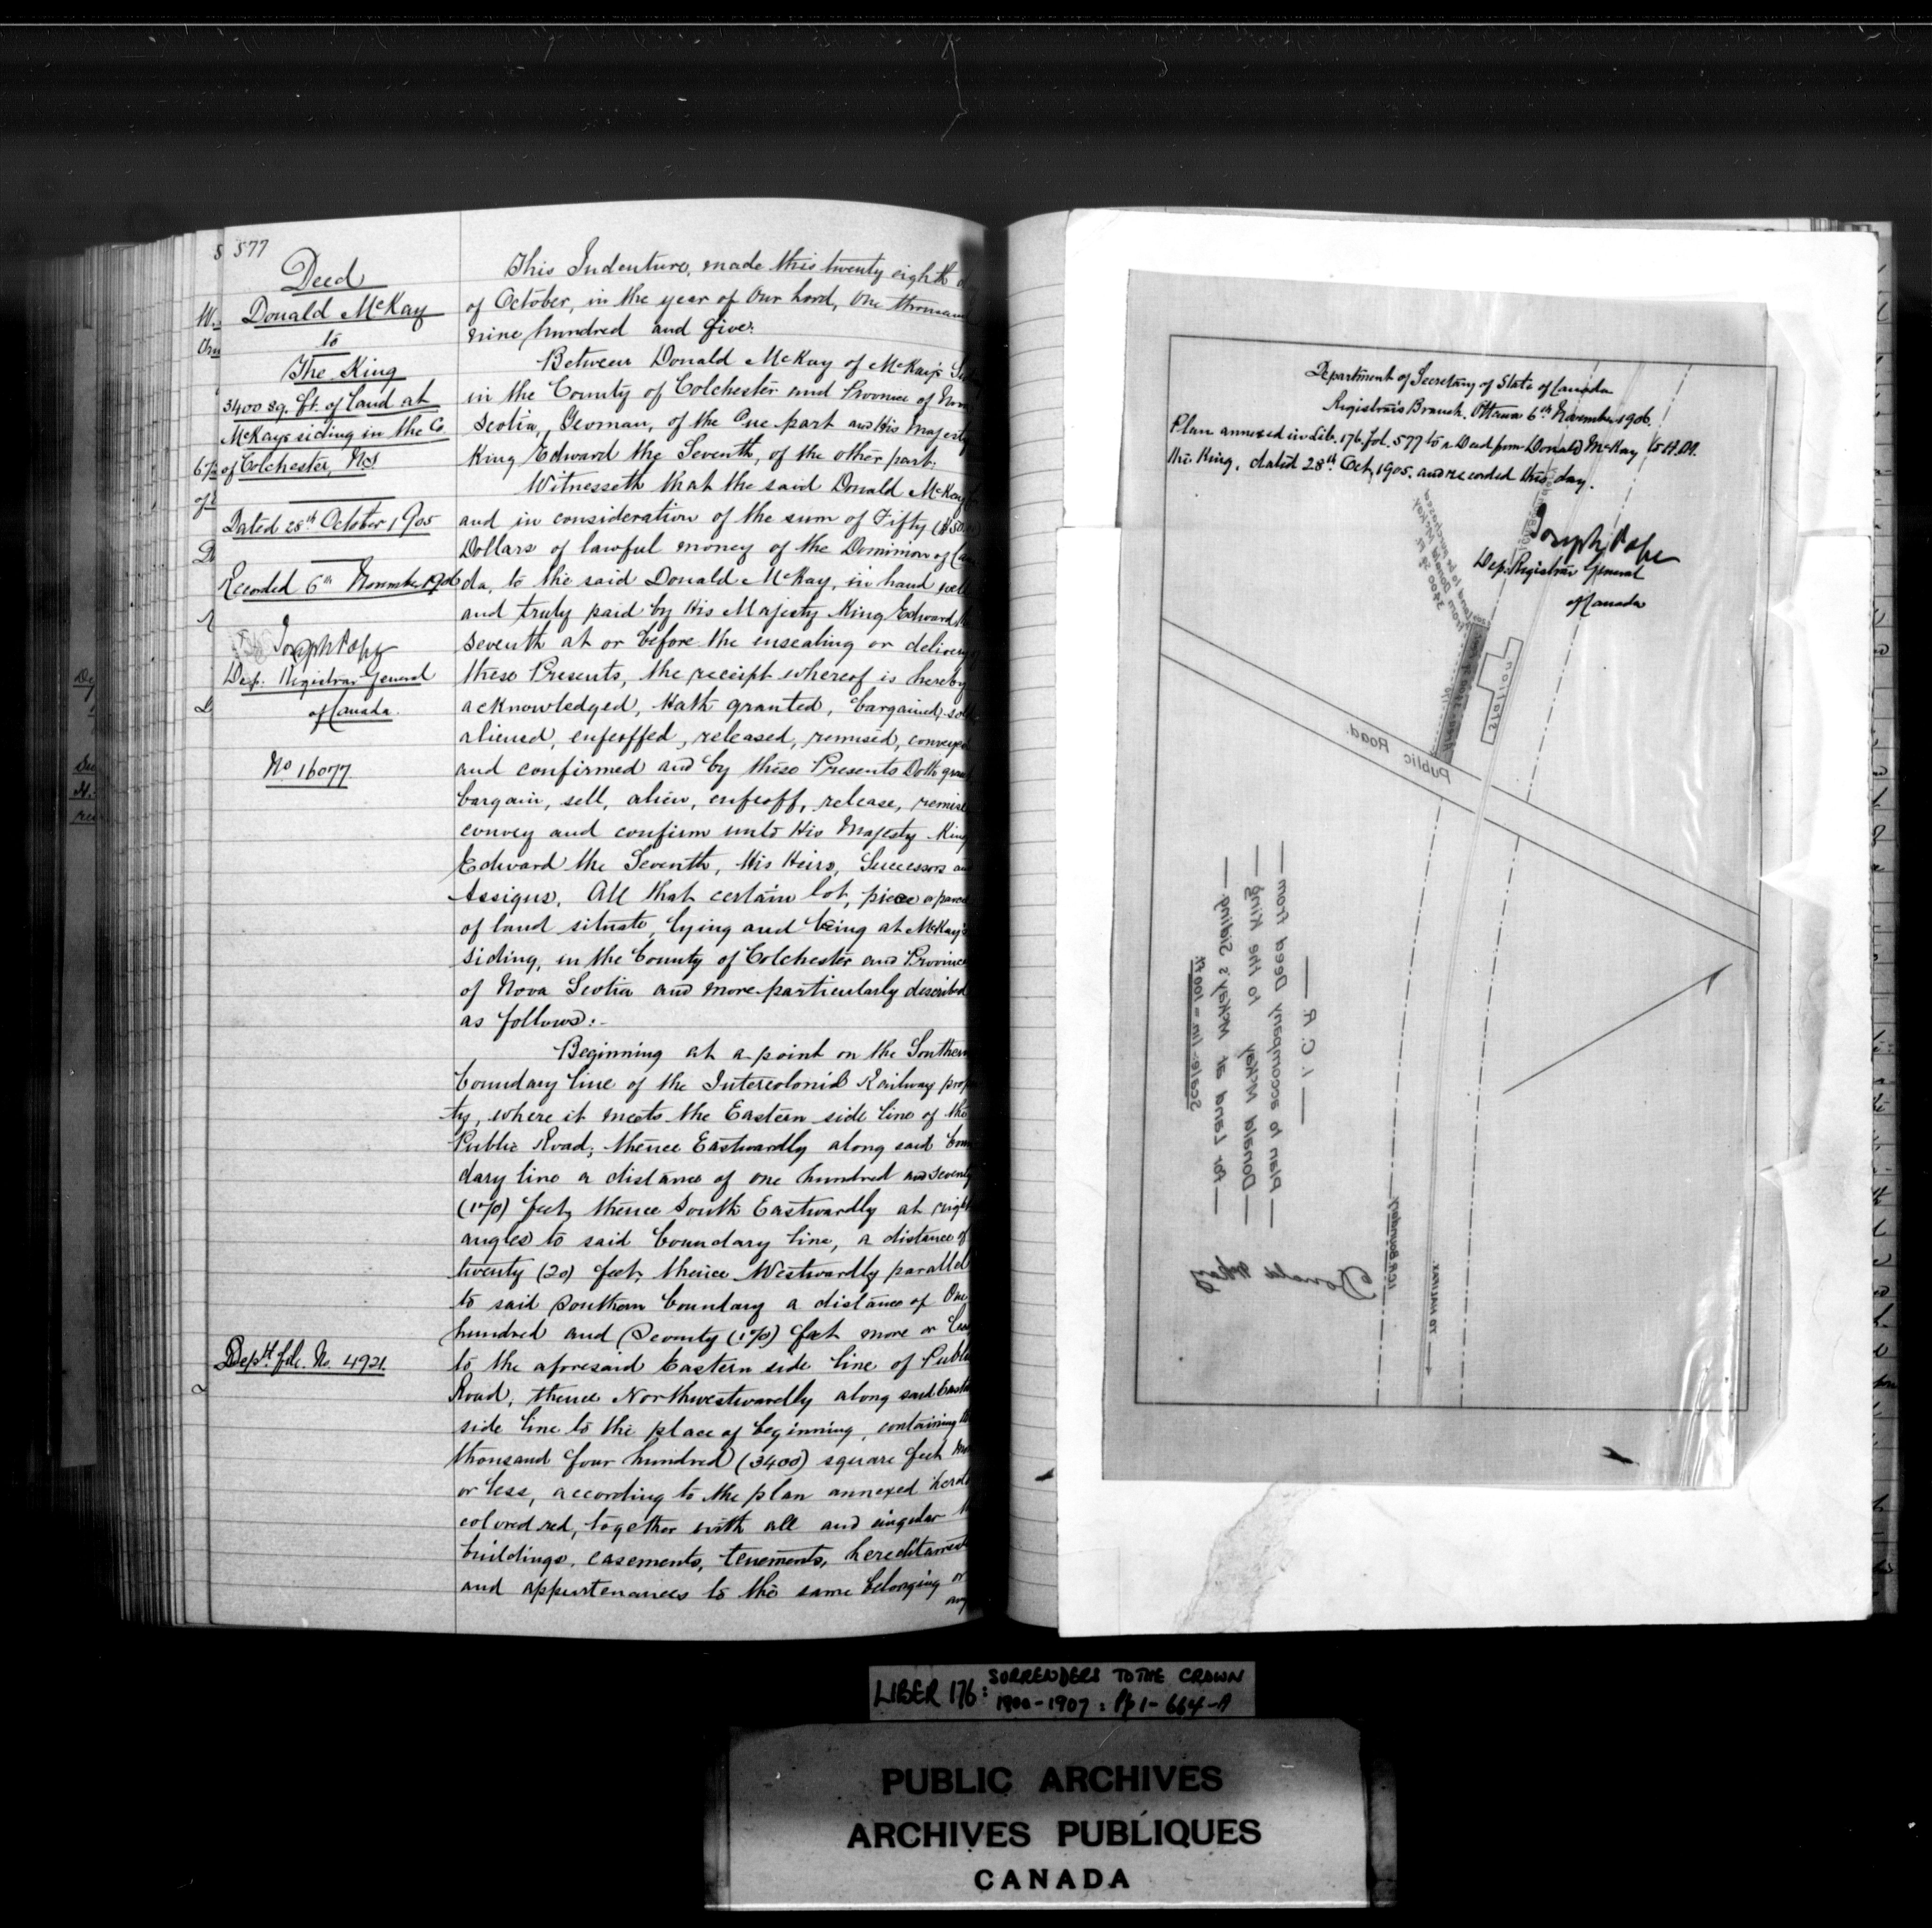 577
Deed
Donald McKay
to
The King
3400 sq. ft. of land at
McKays siding in the Co.
of Colchester, N.S.
Dated 28th October 1905
Recorded 6th November 1906
Joseph Pope
Dep: Registrar General
of Canada.
No 16077
Deptl. file. No. 4921.
This Indenture, made this twenty eighth
of October, in the year of Our Lord, One thousand
nine hundred and five:
Between Donald McKay of McKay's
in the County of Colchester and Province of Nova
Scotia, Yeoman, of the One part and His Majesty
King Edward the Seventh, of the other part:
Witnesseth that the said Donald McKay
and in consideration of the sum of Fifty ($50
Dollars of lawful money of the Dominion of Ca
da, to the said Donald McKay, in hand well
and truly paid by His Majesty King Edward the
Seventh at or before the ensealing or delivery
these Presents, the receipt whereof is hereby
acknowledged, Hath granted, bargained, sold
aliened, enfeoffed, released, remised, conveyed
and confirmed and by these Presents Doth grant
bargain, sell, alien, enfeoff, release, remise
convey and confirm unto His Majesty King
Edward the Seventh, His Heirs, Successors and
Assigns, All that certain lot, piece or parcel
of land situate, lying and being at McKay's
Siding, in the County of Colchester and Province
of Nova Scotia and more particularly described
as follows:-
Beginning at a point on the Southern
boundary line of the Intercolonial Railway prop
ty, where it meets the Eastern side line of the
Public Road; thence Eastwardly along said boun
dary line a distance of one hundred and seventy
(170) feet, thence South Eastwardly at right
angles to said boundary line, a distance of
twenty (20) feet, thence Westwardly parallel
to said Southern boundary a distance of One
hundred and Seventy (170) feet more or less
to the aforesaid Eastern side line of Public
Road, thence Northwestwardly along said East
side line to the place of beginning, containing
thousand four hundred (3400) square feet more
or less, according to the plan annexed hereto
colored red, together with all and singular
buildings, easements, tenements, hereditaments
and appurtenances to the same belonging or
any
Department of Secretary of State of Canada
Registrar's Branch. Ottawa 6th November 1906.
Plan annexed in Lib. 176. fol. 577 to a Deed from Donald McKay to H.M.
the King, dated 28th Oct, 1905. and recorded this day.
Joseph Pope
Dep: Registrar General
of Canada
3400 sq. ft.
to be purchased
from Donald McKay
Station
Public Road.
I.C.R.
Plan to accompany Deed from
Donald McKay to the King
for Land at McKay's Siding
Scale: 1 in = 100 ft.
Donald McKay
I.C.R. Boundary.
To Halifax.
LIBER 176: SURRENDERS TO THE CROWN
1900-1907: Pp 1-664-A
PUBLIC ARCHIVES
ARCHIVES PUBLIQUES
CANADA